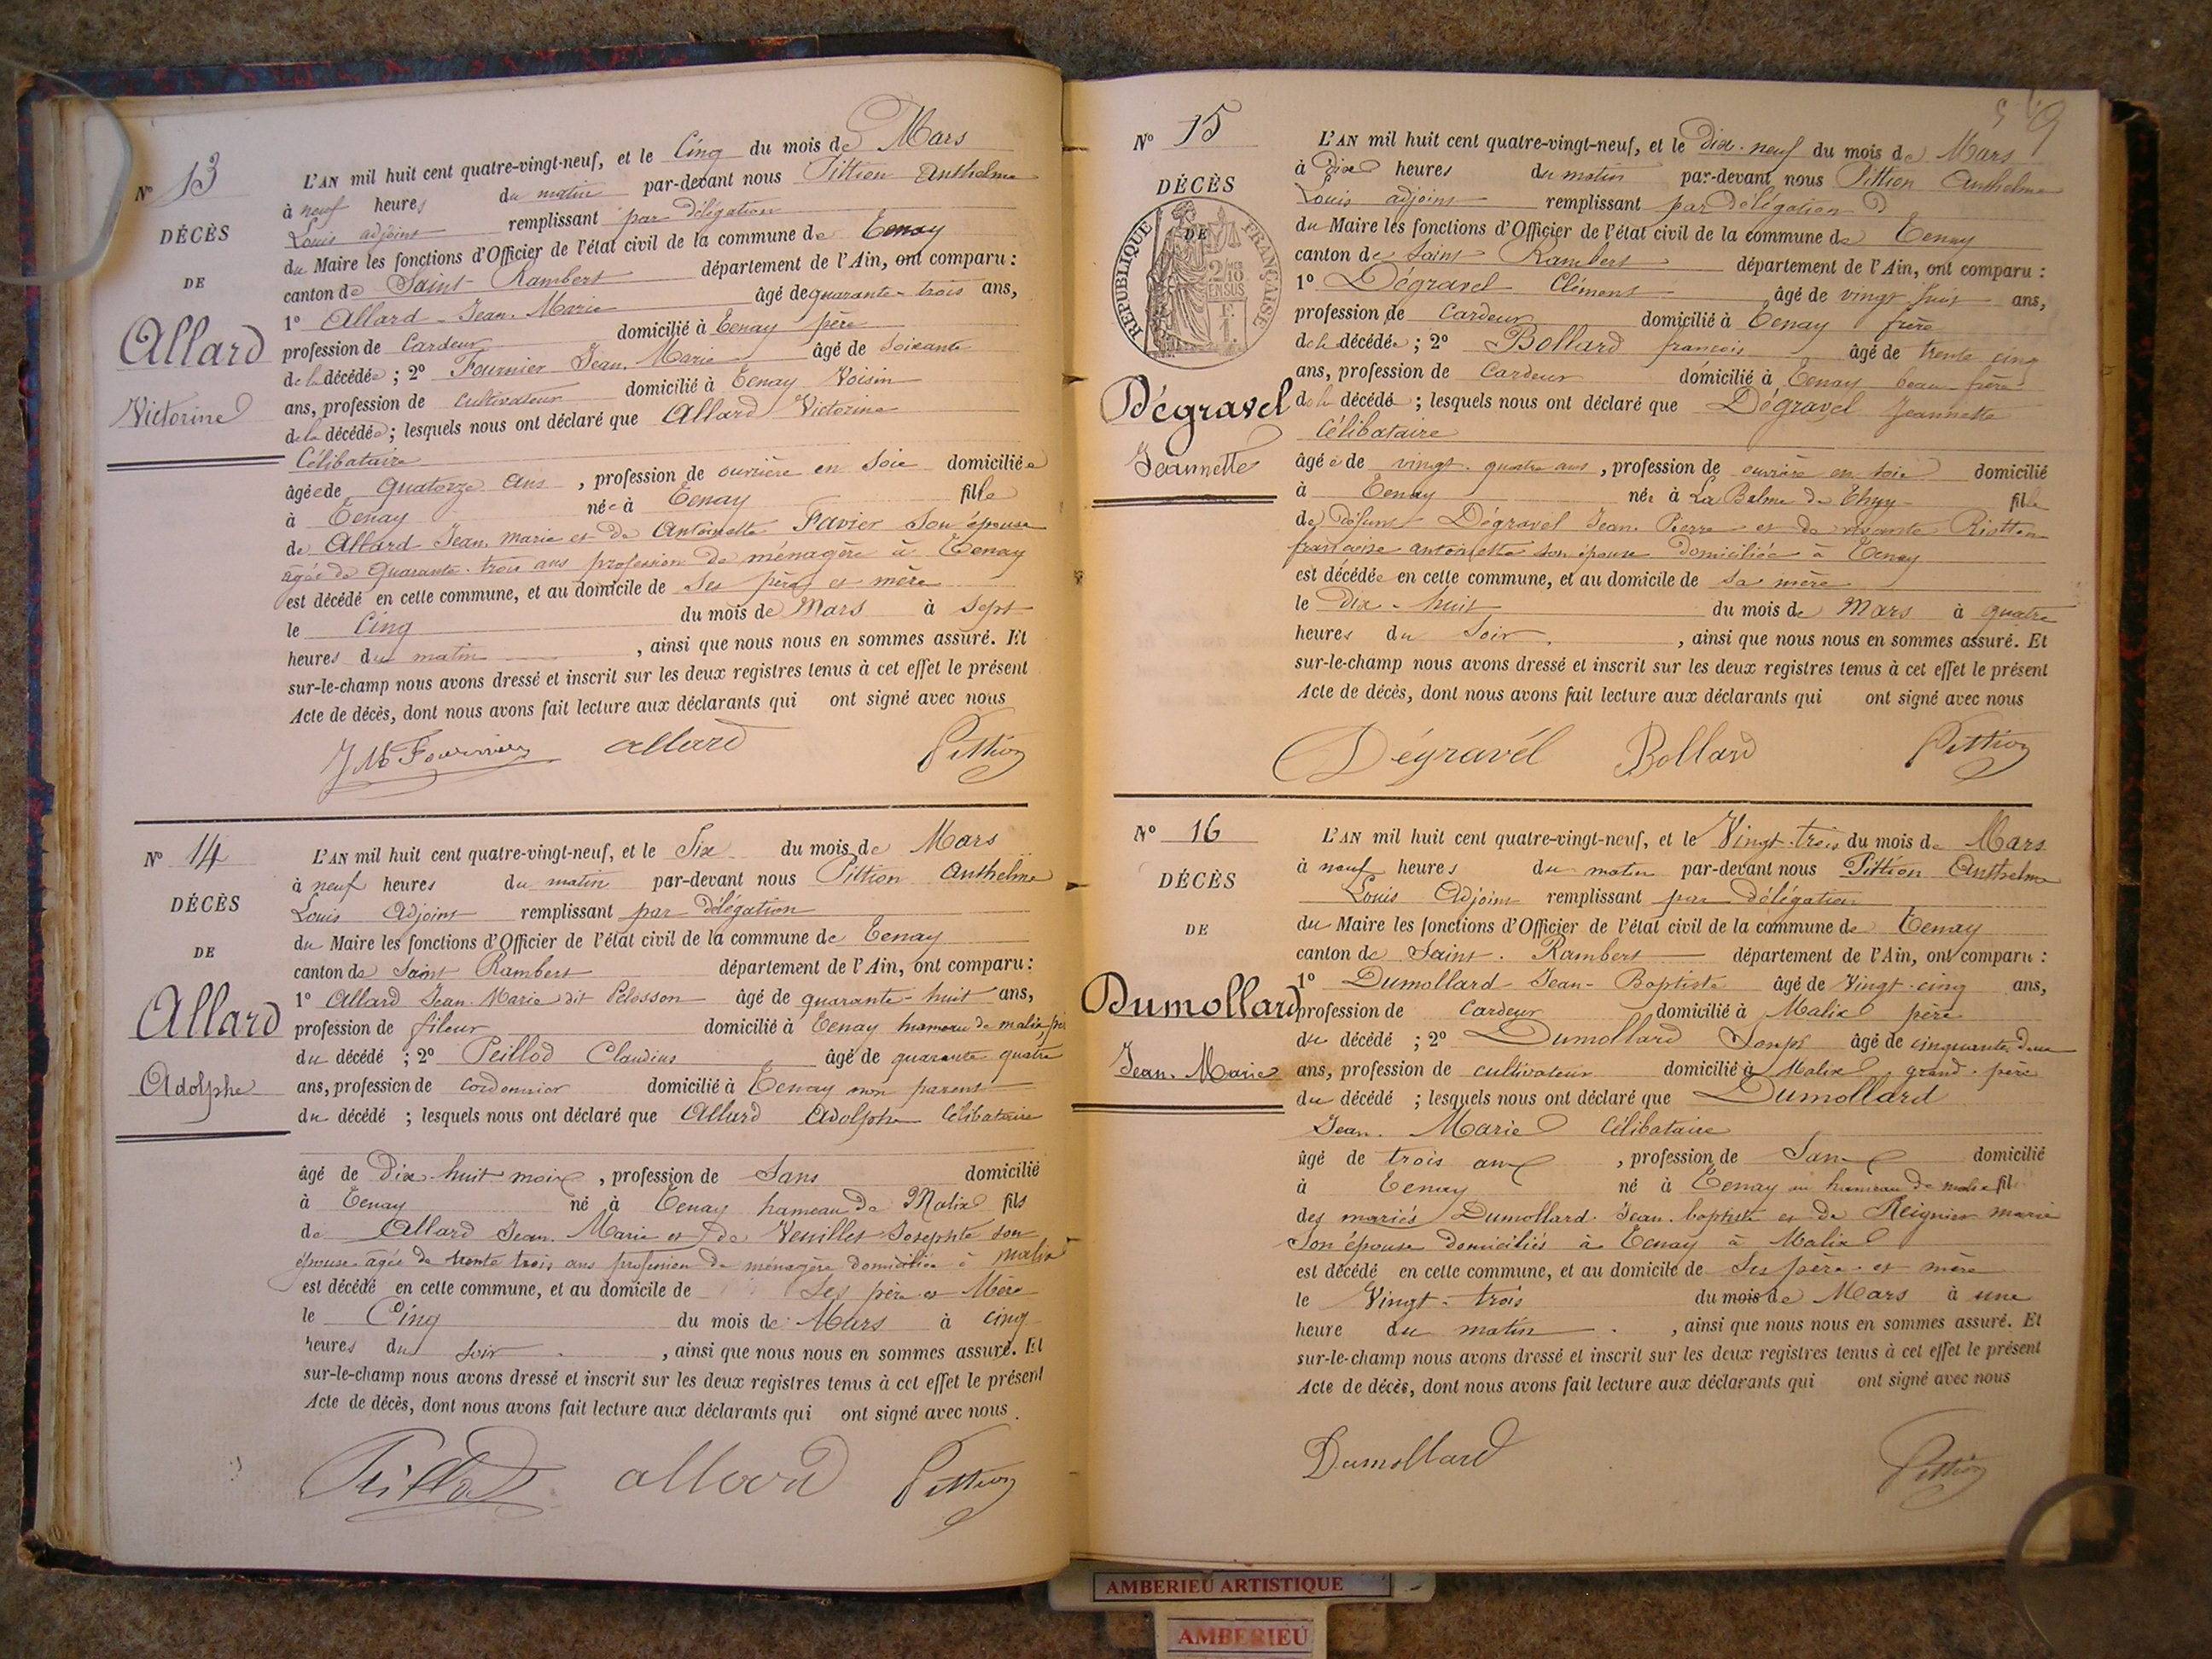 N° 13
DÉCÈS
DE
Allard
Victorine
L'AN mil huit cent quatre-vingt-neuf, et le Cinq du mois de Mars
à neuf heures du matin par-devant nous Pittion Anthelme
Louis adjoint remplissant par délégation
du Maire les fonctions d'Officier de l'état civil de la commune de Tenay
canton de Saint-Rambert département de l'Ain, ont comparu :
1° Allard Jean-Marie âgé de quarante-trois ans,
profession de Cardeur domicilié à Tenay père
de la décédée ; 2° Fournier Jean-Marie âgé de soixante
ans, profession de cultivateur domicilié à Tenay Voisin
de la décédée ; lesquels nous ont déclaré que Allard Victorine
Célibataire
âgée de quatorze ans , profession de ouvrière en soie domiciliée
à Tenay née à Tenay fille
de Allard Jean-marie et de Antoinette Favier son épouse
âgée de quarante-trois ans profession de ménagère à Tenay
est décédé en cette commune, et au domicile de ses père et mère
le Cinq du mois de Mars à sept
heures du matin , ainsi que nous nous en sommes assuré. Et
sur-le-champ nous avons dressé et inscrit sur les deux registres tenus à cet effet le présent
Acte de décès, dont nous avons fait lecture aux déclarants qui ont signé avec nous
JM Fournier allard Pittion
N° 14
DÉCÈS
DE
Allard
Adolphe
L'AN mil huit cent quatre-vingt-neuf, et le Six du mois de Mars
à neuf heures du matin par-devant nous Pittion Anthelme
Louis Adjoint remplissant par délégation
du Maire les fonctions d'Officier de l'état civil de la commune de Tenay
canton de Saint Rambert département de l'Ain, ont comparu :
1° Allard Jean-Marie dit Pelosson âgé de quarante-huit ans,
profession de fileur domicilié à Tenay hameau de malix père
du décédé ; 2° Peillod Claudius âgé de quarante quatre
ans, profession de cordonnier domicilié à Tenay non parent
du décédé ; lesquels nous ont déclaré que Allard Adolphe Célibataire
âgé de Dix-huit mois , profession de Sans domicilié
à Tenay né à Tenay hameau de Malix fils
de Allard Jean-Marie et de Venillet Josephte son
épouse âgée de trente trois ans profession de ménagère domiciliée à malix
est décédé en cette commune, et au domicile de Ses père et Mère
le Cinq du mois de Mars à cinq
heures du soir , ainsi que nous nous en sommes assuré. Et
sur-le-champ nous avons dressé et inscrit sur les deux registres tenus à cet effet le présent
Acte de décès, dont nous avons fait lecture aux déclarants qui ont signé avec nous.
Peillod allard Pittion
N° 15
DÉCÈS
DE
RÉPUBLIQUE FRANÇAISE
Dégravel
Jeannette
L'AN mil huit cent quatre-vingt-neuf, et le Dix-neuf du mois de Mars
à Dix heures du matin par-devant nous Pittion Anthelme
Louis adjoint remplissant par délégation
du Maire les fonctions d'Officier de l'état civil de la commune de Tenay
canton de Saint Rambert département de l'Ain, ont comparu :
1° Dégravel Clément âgé de vingt huit ans,
profession de Cardeur domicilié à Tenay frère
de la décédée ; 2° Bollard françois âgé de trente cinq
ans, profession de Cardeur domicilié à Tenay beau-frère
de la décédé ; lesquels nous ont déclaré que Dégravel Jeannette
Célibataire
âgée de vingt-quatre ans , profession de ouvrière en soie domicilié
à Tenay née à La Balme de Thuy fille
de défunt Dégravel Jean-Pierre et de vivante
françoise antoinette son épouse domiciliée à Tenay
est décédée en cette commune, et au domicile de sa mère
le Dix-huit du mois de Mars à quatre
heures du Soir , ainsi que nous nous en sommes assuré. Et
sur-le-champ nous avons dressé et inscrit sur les deux registres tenus à cet effet le présent
Acte de décès, dont nous avons fait lecture aux déclarants qui ont signé avec nous
Dégravél Bollard Pittion
N° 16
DÉCÈS
DE
Dumollard
Jean-Marie
L'AN mil huit cent quatre-vingt-neuf, et le Vingt-trois du mois de Mars
à neuf heures du matin par-devant nous Pittion Anthelme
Louis Adjoint remplissant par délégation
du Maire les fonctions d'Officier de l'état civil de la commune de Tenay
canton de Saint-Rambert département de l'Ain, ont comparu :
1° Dumollard Jean-Baptiste âgé de Vingt-cinq ans,
profession de Cardeur domicilié à Malix père
du décédé ; 2° Dumollard Joseph âgé de cinquante deux
ans, profession de cultivateur domicilié à Malix grand-père
du décédé ; lesquels nous ont déclaré que Dumollard
Jean-Marie Célibataire
âgé de trois ans , profession de Sans domicilié
à Tenay né à Tenay au hameau de malix fil
des mariés Dumollard Jean-baptiste et de Reignier marie
Son épouse domiciliés à Tenay à Malix
est décédé en cette commune, et au domicile de Ses père et mère
le Vingt-trois du mois de Mars à une
heure du matin , ainsi que nous nous en sommes assuré. Et
sur-le-champ nous avons dressé et inscrit sur les deux registres tenus à cet effet le présent
Acte de décès, dont nous avons fait lecture aux déclarants qui ont signé avec nous
Dumollard Pittion
AMBERIEU ARTISTIQUE
AMBERIEU